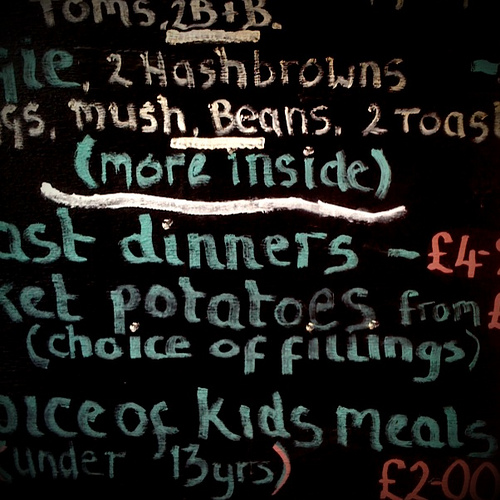 Toms, 2B+B.
gie, 2 Hashbrowns -
gs, mush, Beans, 2 Toast
(more inside)
ast dinners - £4-
ket potatoes from £
(choice of fillings)
oice of Kids Meals
(under 13yrs) £2-00